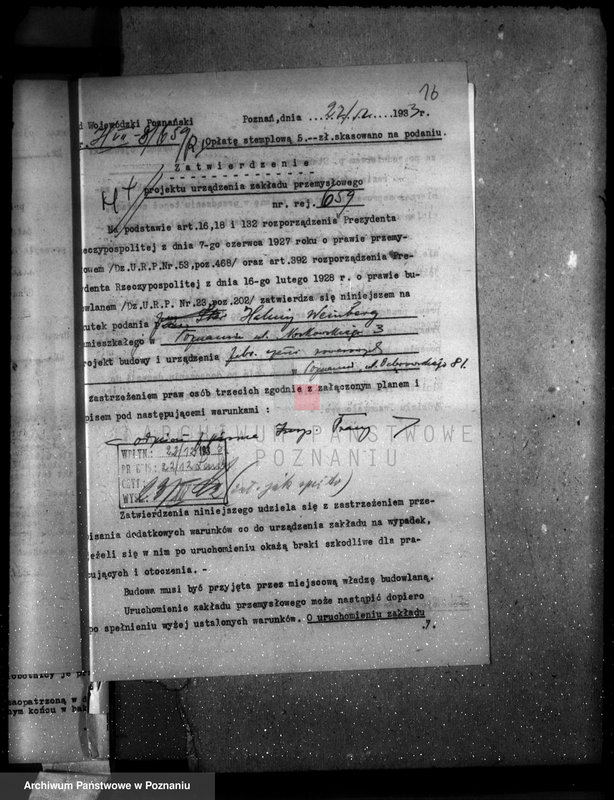 16
d Wojewódzki Poznański Poznań,dnia 22/12 1933 r.
Opłatę stemplową 5.--zł.skasowano na podaniu.
Zatwierdzenie
projektu urządzenia zakładu przemysłowego
nr. rej. 659
Na podstawie art.16,18 i 132 rozporządzenia Prezydenta
eczypospolitej z dnia 7-go czerwca 1927 roku o prawie przemy-
owem /Dz.U.R.P.Nr.53,poz.468/ oraz art.392 rozporządzenia Pre-
ydenta Rzeczypospolitej z 16-go lutego 1928 r. o prawie bu-
owlanem /Dz.U.R.P. Nr.23,poz.202/ zatwierdza się niniejszem na
utek podania Heleny Weinberg
amieszkałego w Poznaniu ul. 3
rojekt budowy i urządzenia
w Poznaniu, ul. Dąbrowskiego 81.
zastrzeżeniem praw osób trzecich zgodnie z załączonym planem i
pisem pod następującemi warunkami :
Insp. Pracy
ARCHIWUM PAŃSTWOWE
W POZNANIU
WPŁYN.: 22/12 193
22/12
Zatwierdzenia niniejszego udziela się z zastrzeżeniem prze-
pisania dodatkowych warunków co do urządzenia zakładu na wypadek,
jeżeli się w nim po uruchomieniu okażą braki szkodliwe dla pra-
cujących i otoczenia. -
Budowa musi być przyjęta przez miejscową władzę budowlaną.
Uruchomienie zakładu przemysłowego może nastąpić dopiero
po spełnieniu wyżej ustalonych warunków. O uruchomieniu zakładu
./.
obotnicy je
zaopatrzoną w d
nym końcu w
Archiwum Państwowe w Poznaniu